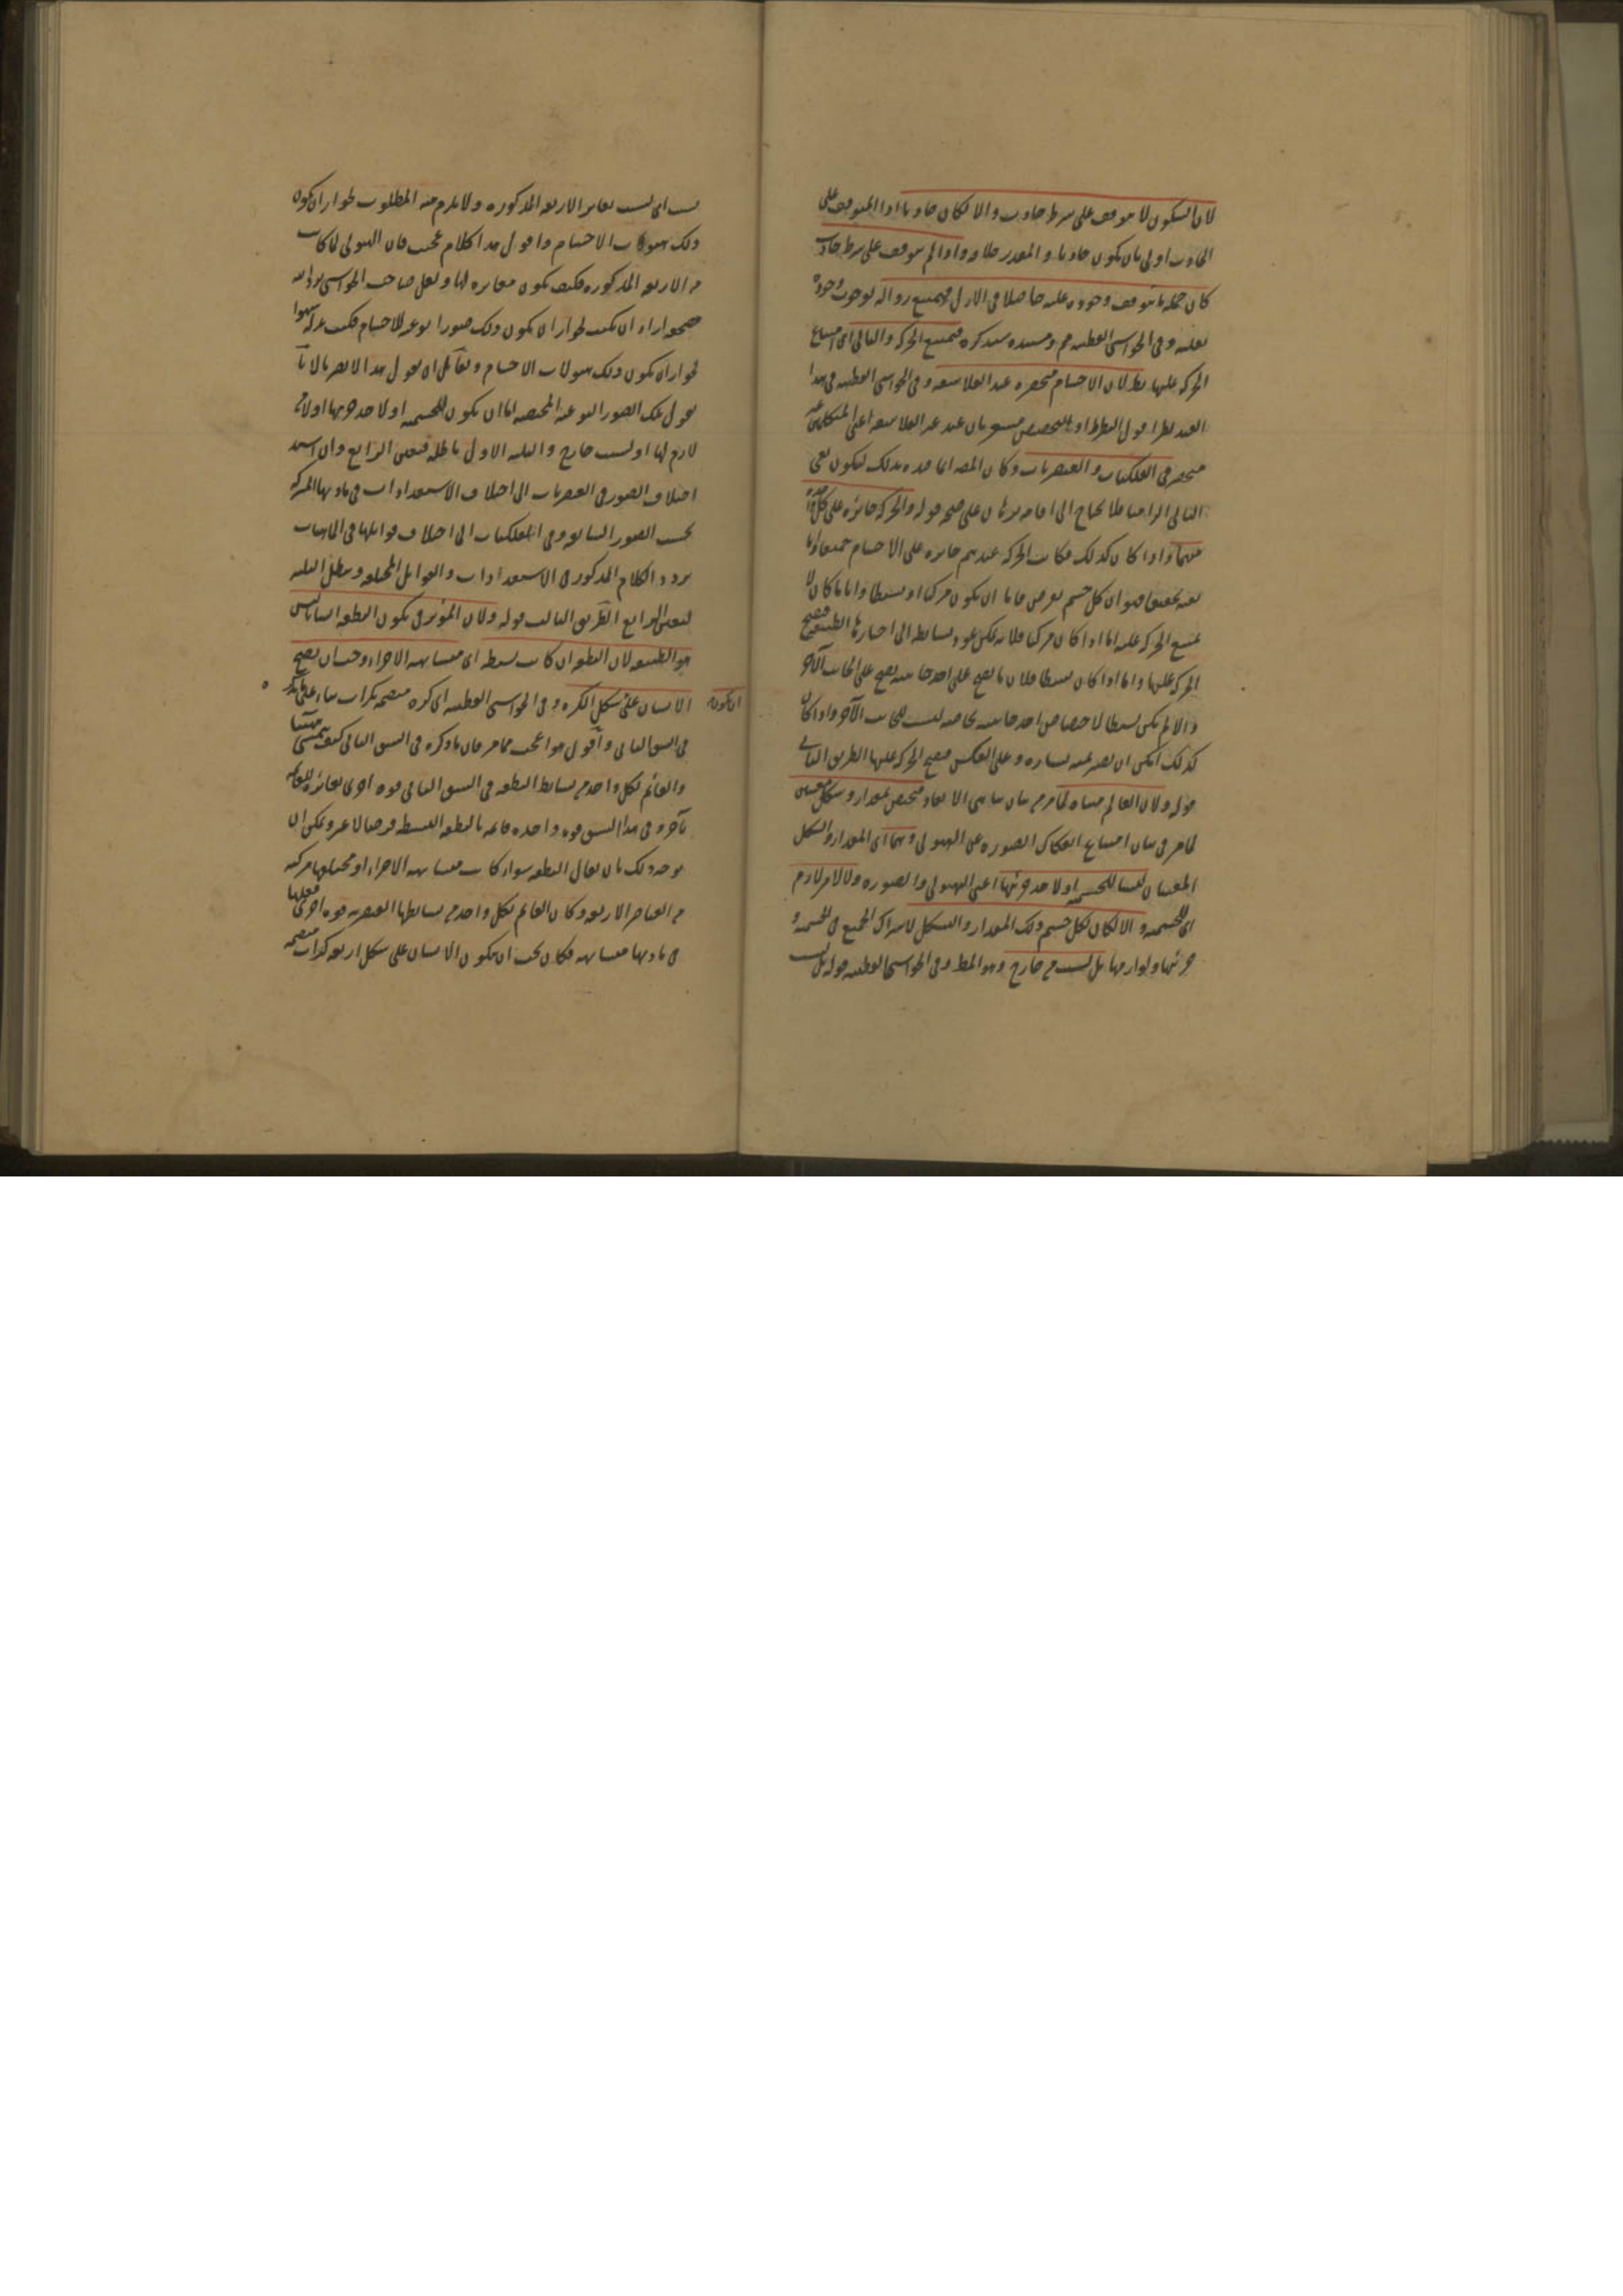 لان السكون لا يتوقف على شرط حادث والا لكان حادثا اذ المتوقف على
الحادث اولى بان يكون حادثا والمقدر خلافه واذا لم يتوقف على شرط حادث
كان جملة ما يتوقف وجوده عليه حاصلا في الازل فيمتنع زواله لوجوب وجوده
بعلته وفي الحواشي القطبية وسنده سيذكره فيمتنع الحركة والتالي اى امتناع
الحركة عليها بط لان الاجسام منحصره عند الفلاسفه وفي الحواشي القطبيه في هذا
القيد نظر اقول النظر او التخصيص مشعر بان عند غير الفلاسفه اعنى المتكلمين
منحصر في الفلكيات والعنصريات وكان المصـ انما قيده بذلك ليكون نفى
التالى الزاميا فلا يحتاج الى اقامه برهان على صحه قوله والحركه جائزه على كل واحد
منهما واذا كان كذلك فكانت الحركه عندهم جائزه على الاجسام جميعا واما
فهو ان كل جسم يفرض فاما ان يكون مركبا او بسيطا وايا ما كان لا
يمتنع الحركه عليه اما اذا كان مركبا فلانه يمكن عود بسائطه الى احيازها الطبيعيه فيصح
الحركه عليها واما اذا كان بسيطا فلان ما يصح على احد جانبيه يصح على الجانب الآخر
والا لم يكن بسيطا لاختصاص احد جانبيه بخاصه ليست للجانب الآخر واذا كان
كذلك امكن ان يصير يمينه يساره وعلى العكس فيصح الحركه عليها الطريق الثاني
قوله ولان العالم متناه لما مر من بيان تناهى الابعاد مختص بمقدار وشكل معينين
لما مر في بيان امتناع انفكاك الصوره عن الهيولى وهما اى المقدار والشكل
المعينان ليسا للجسميه ولا لاحد جزئيها اعنى الهيولى والصوره ولا لامر لازم
اى للجسميه والا لكان لكل جسم ذلك المقدار والشكل لاشتراك الجميع في الجسميه و
جزئيها ولوازمها بل لسبب من خارج وهو المط وفي الحواشى القطبيه قوله بل لسبب
لسبب اى لسبب يغاير الاربعه المذكوره ولا يلزم منه المطلوب لجواز ان يكون
ذلك هيولات الاجسام واقول هذا كلام عجيب فان الهيولى لما كانت
من الاربعه المذكوره فكيف يكون مغايره لها ولعل صاحب الحواشى
اراد ان يكتب لجواز ان يكون ذلك صورا نوعيه للاجسام فكتب بدله سهوا
لجواز ان يكون ذلك هيولات الاجسام ولقائل ان يقول هذا لا يضر لانا
نقول تلك الصور النوعيه المختصه اما ان يكون للجسميه او لاحد جزئيها او لامر
لازم لها او لسبب خارج والثلثه الاول باطله فتعين الرابع وان اسند
اختلاف الصور في العنصريات الى اختلاف الاستعدادات في مادتها المشتركه
بحسب الصور السابقه وفي الفلكيات الى اختلاف قوابلها في الماهيات
يردد الكلام المذكور في الاستعدادات والقوابل المختلفه ويبطل الثلثه
ليتعين الرابع الطريق الثالث قوله ولان المؤثر في تكون النطفه انسانا ليس
هو الطبيعه لان النطفه ان كانت بسيطه اى متشابهه الاجزاء وجب ان يصح
ان يكون الانسان على شكل الكره وفي الحواشى القطبيه اى كره منضمه بكرات بناء على ما ذكر
في الشق الثانى واقول هو اعجب مما مر فان ما ذكره في الشق الثانى كيف يتمشى هاهنا
والقائم بكل واحد من بسائط النطفه في الشق الثانى قوه اخرى مغايره للقائمه
بآخر وفي هذا الشق قوه واحده قائمه بالنطفه البسيطه فرضا لا غير ويمكن ان
يوجه ذلك بان يقال النطفه سواء كانت متشابهه الاجزاء او مختلفها مركبه
من العناصر الاربعه وكان القائم بكل واحد من بسائطها العنصريه قوه اخرى فعلها
في مادتها متشابهه فكان يجب ان يكون الانسان على شكل اربعه كرات منضمه